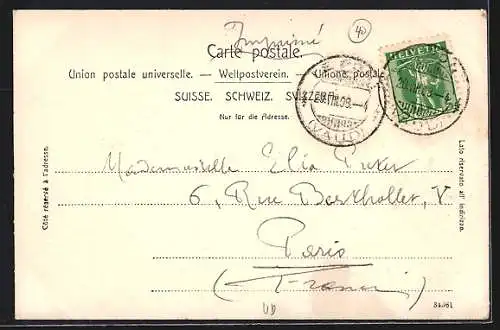 Imprimé
40
Carte postale.
Union postale universelle. — Weltpostverein. — Unione postale
SUISSE. SCHWEIZ. SVIZZERA.
Nur für die Adresse.
HELVETIA
(VAUD)
Côté réservé à l'adresse.
Lato riservato all' indirizzo.
Mademoiselle Elia
6, Rue Berthollet, V
Paris
(France)